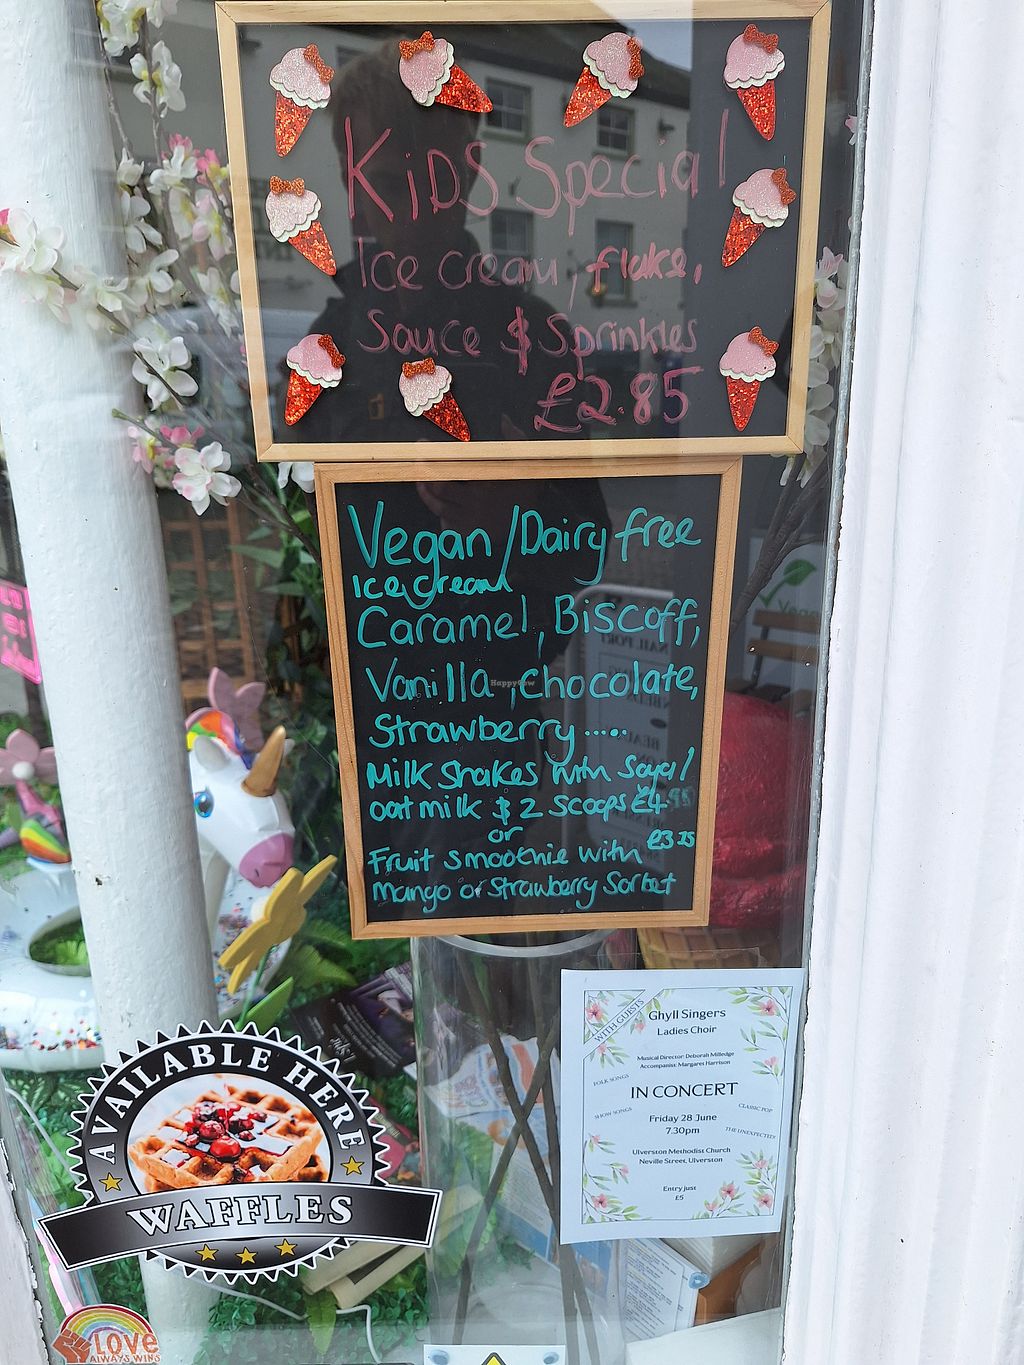 KiDS Special
Ice cream, flake,
Sauce $ Sprinkles
£2.85
Vegan/Dairy free
Ice cream
Caramel, Biscoff,
Vanilla, chocolate,
Strawberry .....
Milk Shakes with Soya/
oat milk $ 2 scoops £4.95
or
£3.25
Fruit smoothie with
mango or strawberry Sorbet
HappyCow
WITH GUESTS
Ghyll Singers
Ladies Choir
Musical Director: Deborah Milledge
Accompanist: Margaret Harrison
FOLK SONGS
IN CONCERT
SHOW SONGS
CLASSIC POP
Friday 28 June
7.30pm
THE UNEXPECTED
Ulverston Methodist Church
Neville Street, Ulverston
Entry just
£5
AVAILABLE HERE
WAFFLES
LOVE
ALWAYS WINS